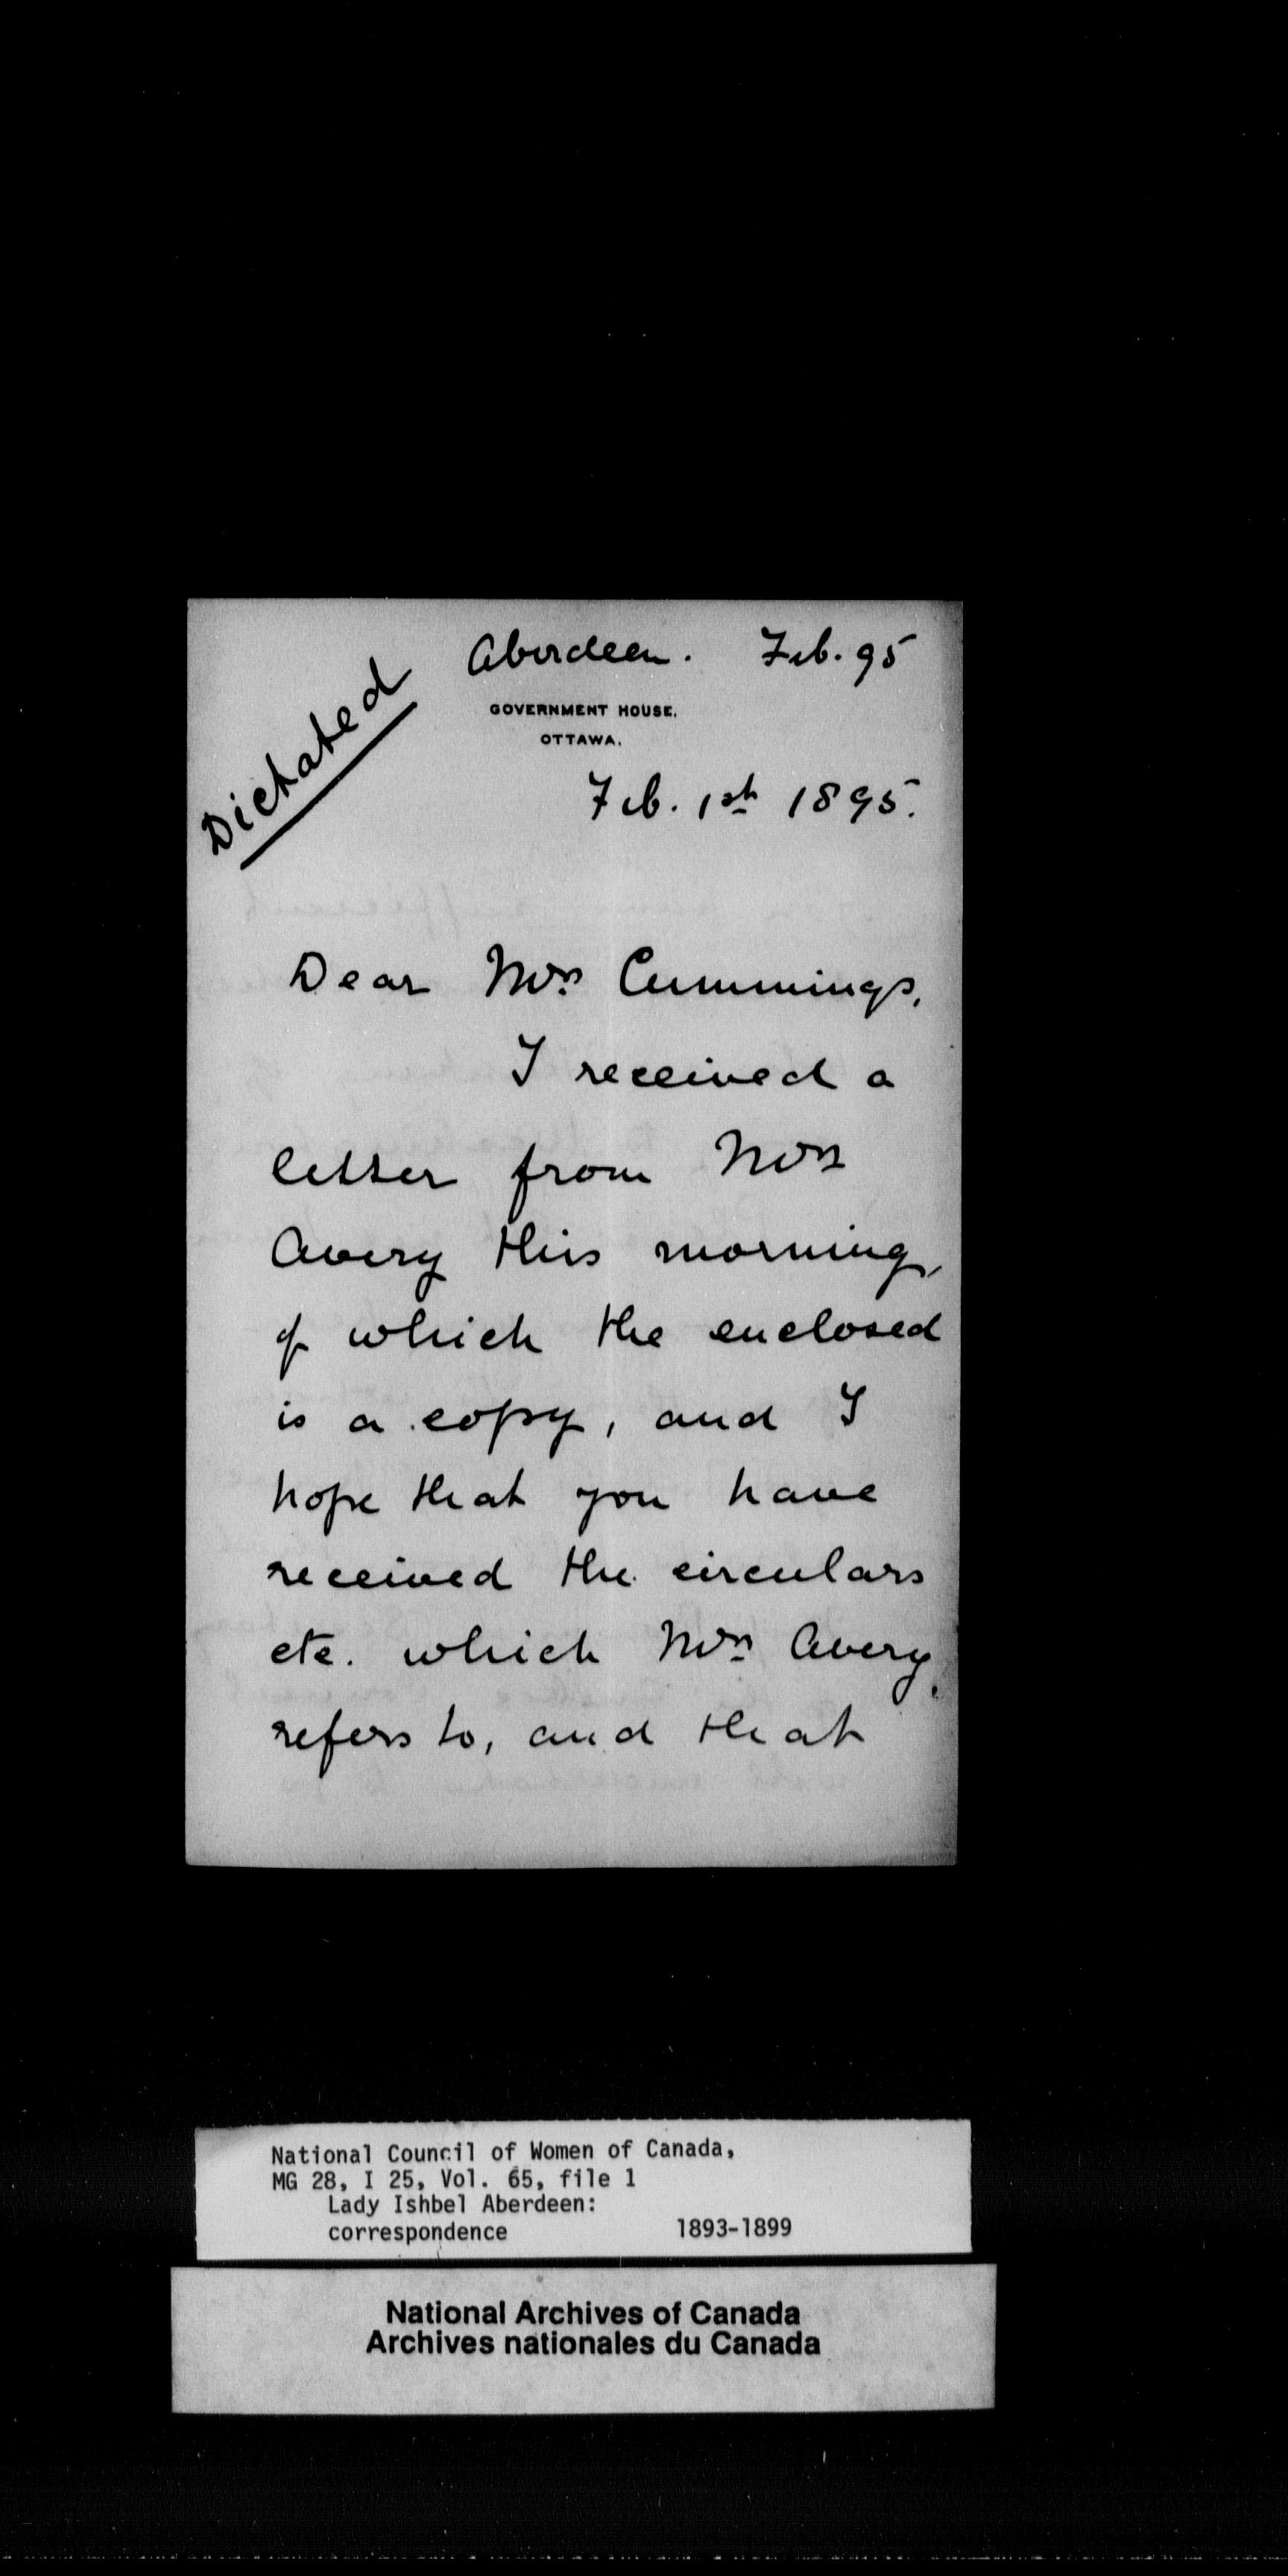 Aberdeen. Feb. 95
Dictated
GOVERNMENT HOUSE.
OTTAWA.
Feb. 1st 1895.
Dear Mrs Cummings,
I received a
letter from Mrs
Avery this morning,
of which the enclosed
is a copy, and I
hope that you have
received the circulars
etc. which Mrs Avery
refers to, and that
National Council of Women of Canada,
MG 28, I 25, Vol. 65, file 1
Lady Ishbel Aberdeen:
correspondence 1893-1899
National Archives of Canada
Archives nationales du Canada